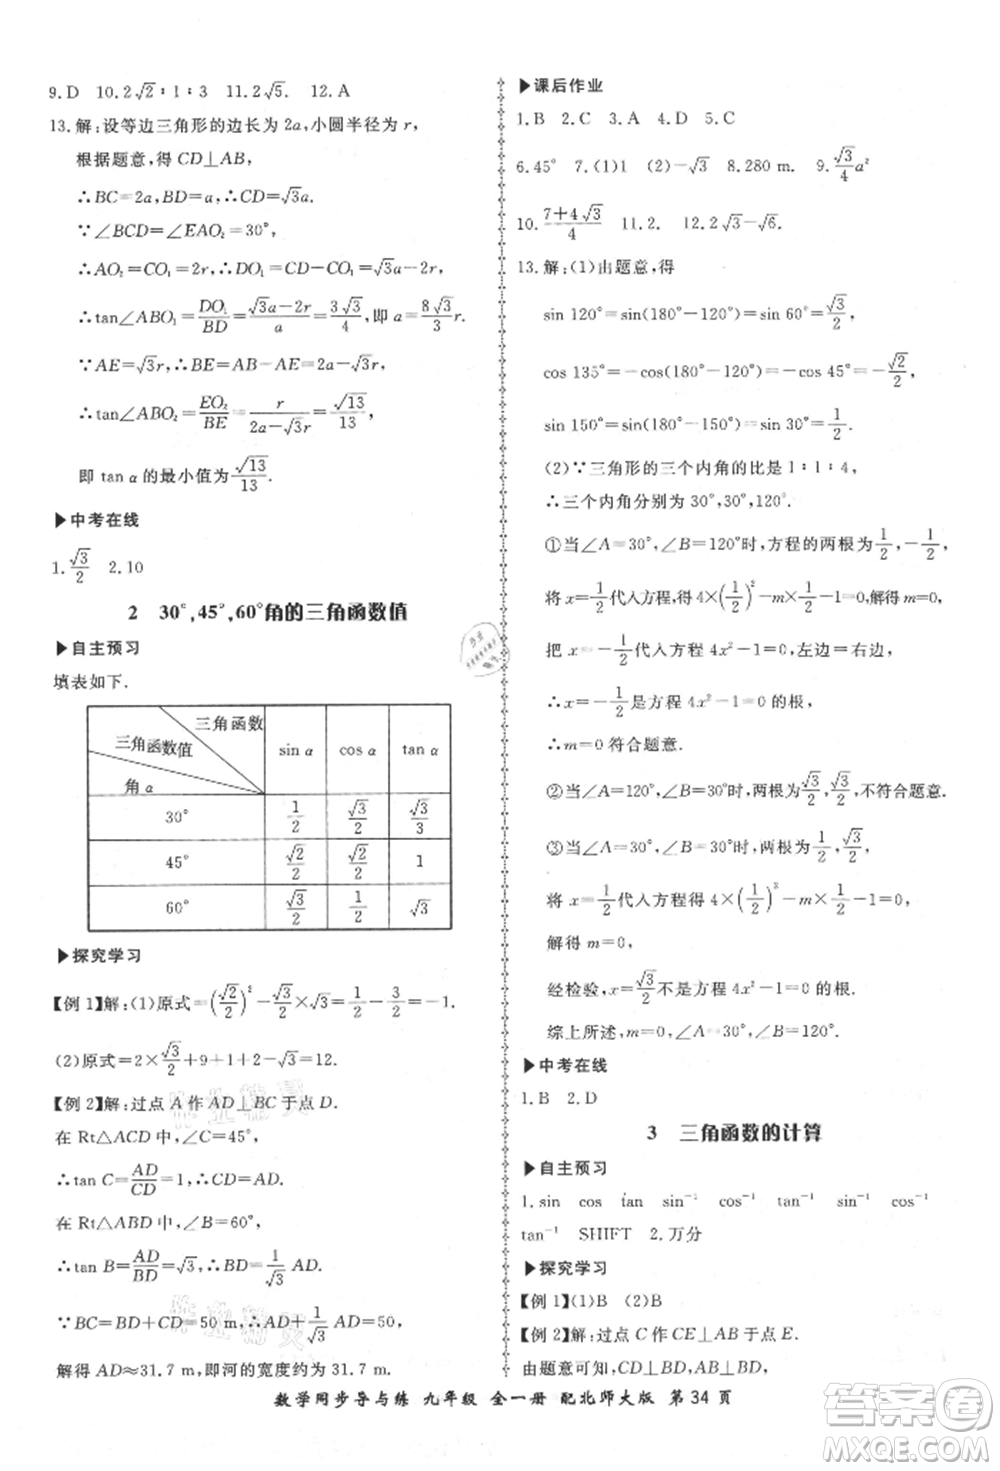 9. D　10. 2√2∶1∶3　11. 2√5.　12. A
13. 解:设等边三角形的边长为 2a,小圆半径为 r,
根据题意,得 CD⊥AB,
∴BC=2a,BD=a,∴CD=√3a.
∵∠BCD=∠EAO₂=30°,
∴AO₂=CO₁=2r,∴DO₁=CD-CO₁=√3a-2r,
∴tan∠ABO₁=DO₁/BD=(√3a-2r)/a=3√3/4,即 a=(8√3/3)r.
∵AE=√3r,∴BE=AB-AE=2a-√3r,
∴tan∠ABO₂=EO₂/BE=r/(2a-√3r)=√13/13,
即 tan α 的最小值为 √13/13.
▶中考在线
1. √3/2　2. 10
2　30°,45°,60°角的三角函数值
▶自主预习
填表如下.
三角函数
三角函数值
角 α
sin α　cos α　tan α
30°　1/2　√3/2　√3/3
45°　√2/2　√2/2　1
60°　√3/2　1/2　√3
▶探究学习
【例 1】解:(1)原式=(√2/2)²-√3/2×√3=1/2-3/2=-1.
(2)原式=2×√3/2+9+1-√3=12.
【例 2】解:过点 A 作 AD⊥BC 于点 D.
在 Rt△ACD 中,∠C=45°,
∴tan C=AD/CD=1,∴CD=AD.
在 Rt△ABD 中,∠B=60°,
∴tan B=AD/BD=√3,∴BD=(1/√3)AD.
∵BC=BD+CD=50 m,∴AD+(1/√3)AD=50.
解得 AD≈31.7 m,即河的宽度约为 31.7 m.
▶课后作业
1. B　2. C　3. A　4. D　5. C
6. 45°　7. (1)1　(2)-√3　8. 280 m.　9. (√3/4)a²
10. (7+4√3)/4　11. 2.　12. 2√3-√6.
13. 解:(1)由题意,得
sin 120°=sin(180°-120°)=sin 60°=√3/2,
cos 135°=-cos(180°-120°)=-cos 45°=-√2/2,
sin 150°=sin(180°-150°)=sin 30°=1/2.
(2)∵三角形的三个内角的比是 1∶1∶4,
∴三个内角分别为 30°,30°,120°.
①当∠A=30°,∠B=120°时,方程的两根为 1/2,-1/2,
将 x=1/2 代入方程,得 4×(1/2)²-m×1/2-1=0,解得 m=0.
把 x=-1/2 代入方程 4x²-1=0,左边=右边,
∴x=-1/2 是方程 4x²-1=0 的根,
∴m=0 符合题意.
②当∠A=120°,∠B=30°时,两根为 √3/2,√3/2,不符合题意.
③当∠A=30°,∠B=30°时,方程的两根为 1/2,√3/2,
将 x=1/2 代入方程得 4×(1/2)²-m×1/2-1=0,
解得 m=0,
经检验,x=√3/2 不是方程 4x²-1=0 的根.
综上所述,m=0,∠A=30°,∠B=120°.
▶中考在线
1. B　2. D
3　三角函数的计算
▶自主预习
1. sin　cos　tan　sin⁻¹　cos⁻¹　tan⁻¹　sin⁻¹　cos⁻¹
tan⁻¹　SHIFT　2. 万分
▶探究学习
【例 1】(1)B　(2)B
【例 2】解:过点 C 作 CE⊥AB 于点 E.
由题意可知,CD=BE
数学同步导与练　九年级　全一册　配北师大版　第 34 页
作业精灵
作业精灵
答案圈
MXQE.COM